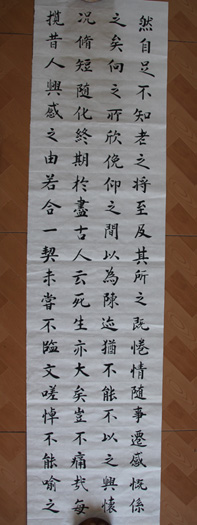 然自足不知老之将至及其所之既惓情随事遷感慨係
之矣向之所欣俛仰之間以為陳迹猶不能不以之興懷
况脩短随化終期於盡古人云死生亦大矣豈不痛哉每
攬昔人興感之由若合一契未嘗不臨文嗟悼不能喻之